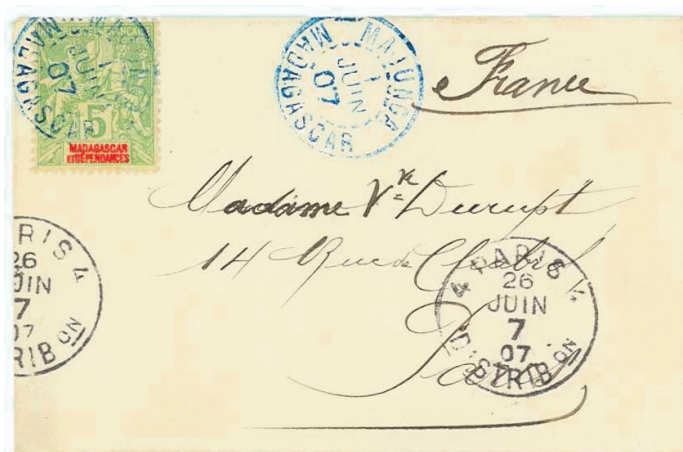 MAJUNGA
1
JUIN
07
MADAGASCAR
5
MADAGASCAR
ET DÉPENDANCES
MAJUNGA
1
JUIN
07
MADAGASCAR
France
Madame Vve Durupt
14 Rue de Chabrol
Paris
PARIS 4
26
JUIN
7
07
TRIB ON
4 PARIS 4
26
JUIN
7
07
DISTRIB ON